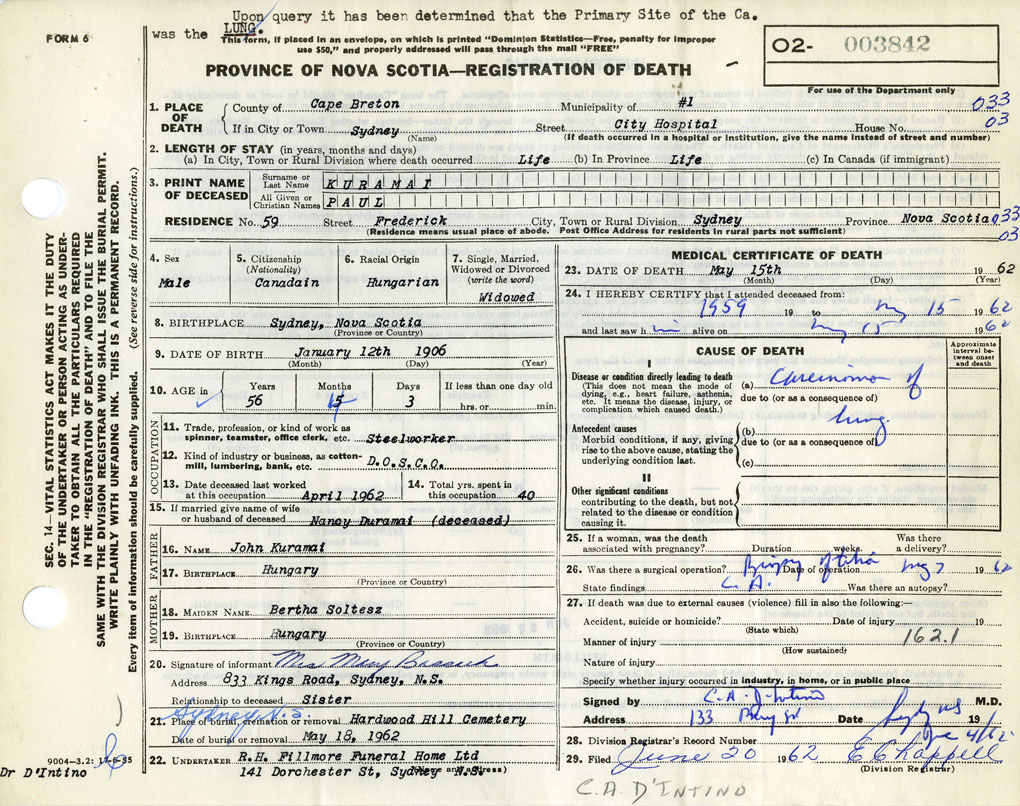 Upon query it has been determined that the Primary Site of the Ca.
was the LUNG.
FORM 6
This form, if placed in an envelope, on which is printed "Dominion Statistics—Free, penalty for improper
use $50," and properly addressed will pass through the mail "FREE"
O2- 003842
For use of the Department only
PROVINCE OF NOVA SCOTIA—REGISTRATION OF DEATH
1. PLACE OF DEATH
County of Cape Breton Municipality of #1 033
If in City or Town Sydney (Name) Street City Hospital House No. 03
(If death occurred in a hospital or institution, give the name instead of street and number)
2. LENGTH OF STAY (in years, months and days)
(a) In City, Town or Rural Division where death occurred Life (b) In Province Life (c) In Canada (if immigrant)
3. PRINT NAME OF DECEASED
Surname or Last Name KURAMAI
All Given or Christian Names PAUL
RESIDENCE No. 59 Street Frederick City, Town or Rural Division Sydney Province Nova Scotia 033
(Residence means usual place of abode. Post Office Address for residents in rural parts not sufficient) 03
4. Sex
Male
5. Citizenship
(Nationality)
Canadain
6. Racial Origin
Hungarian
7. Single, Married,
Widowed or Divorced
(write the word)
Widowed
8. BIRTHPLACE Sydney, Nova Scotia
(Province or Country)
9. DATE OF BIRTH January 12th 1906
(Month) (Day) (Year)
10. AGE in
Years 56
Months 15
Days 3
If less than one day old
hrs. or min.
OCCUPATION
11. Trade, profession, or kind of work as
spinner, teamster, office clerk, etc. Steelworker
12. Kind of industry or business, as cotton-
mill, lumbering, bank, etc. D.O.S.C.O.
13. Date deceased last worked
at this occupation April 1962
14. Total yrs. spent in
this occupation 40
15. If married give name of wife
or husband of deceased Nancy Duramai (deceased)
FATHER
16. NAME John Kuramai
17. BIRTHPLACE Hungary
(Province or Country)
MOTHER
18. MAIDEN NAME Bertha Soltesz
19. BIRTHPLACE Hungary
(Province or Country)
20. Signature of informant Mrs Mary
Address 833 Kings Road, Sydney, N.S.
Relationship to deceased Sister
Sydney N.S.
21. Place of burial, cremation or removal Hardwood Hill Cemetery
Date of burial or removal May 18, 1962
22. UNDERTAKER R.H. Fillmore Funeral Home Ltd
141 Dorchester St, Sydney N.S.
(Name and Address)
MEDICAL CERTIFICATE OF DEATH
23. DATE OF DEATH May 15th 1962
(Month) (Day) (Year)
24. I HEREBY CERTIFY that I attended deceased from:
1959 19 to May 15 1962
and last saw him alive on May 15 1962
CAUSE OF DEATH
Approximate interval between onset and death
I
Disease or condition directly leading to death
(This does not mean the mode of
dying, e.g., heart failure, asthenia,
etc. It means the disease, injury, or
complication which caused death.)
(a) Carcinoma of
due to (or as a consequence of)
lung.
Antecedent causes
Morbid conditions, if any, giving
rise to the above cause, stating the
underlying condition last.
(b)
due to (or as a consequence of)
(c)
II
Other significant conditions
contributing to the death, but not
related to the disease or condition
causing it.
25. If a woman, was the death
associated with pregnancy? Duration weeks. Was there
a delivery?
26. Was there a surgical operation? Biopsy Date of operation May 7 1962
State findings C.A. Was there an autopsy?
27. If death was due to external causes (violence) fill in also the following:—
Accident, suicide or homicide? Date of injury 19
(State which)
Manner of injury 162.1
(How sustained)
Nature of injury
Specify whether injury occurred in industry, in home, or in public place
Signed by C.A. D'Intino M.D.
Address 133 Date 19
June 4/62
28. Division Registrar's Record Number
29. Filed June 20 1962 E C Chappell
(Division Registrar)
C.A. D'INTINO
SEC. 14—VITAL STATISTICS ACT MAKES IT THE DUTY
OF THE UNDERTAKER OR PERSON ACTING AS UNDER-
TAKER TO OBTAIN ALL THE PARTICULARS REQUIRED
IN THE "REGISTRATION OF DEATH" AND TO FILE THE
SAME WITH THE DIVISION REGISTRAR WHO SHALL ISSUE THE BURIAL PERMIT.
WRITE PLAINLY WITH UNFADING INK. THIS IS A PERMANENT RECORD.
Every item of information should be carefully supplied. (See reverse side for instructions.)
9004—3.2: 17-6-55
Dr D'Intino